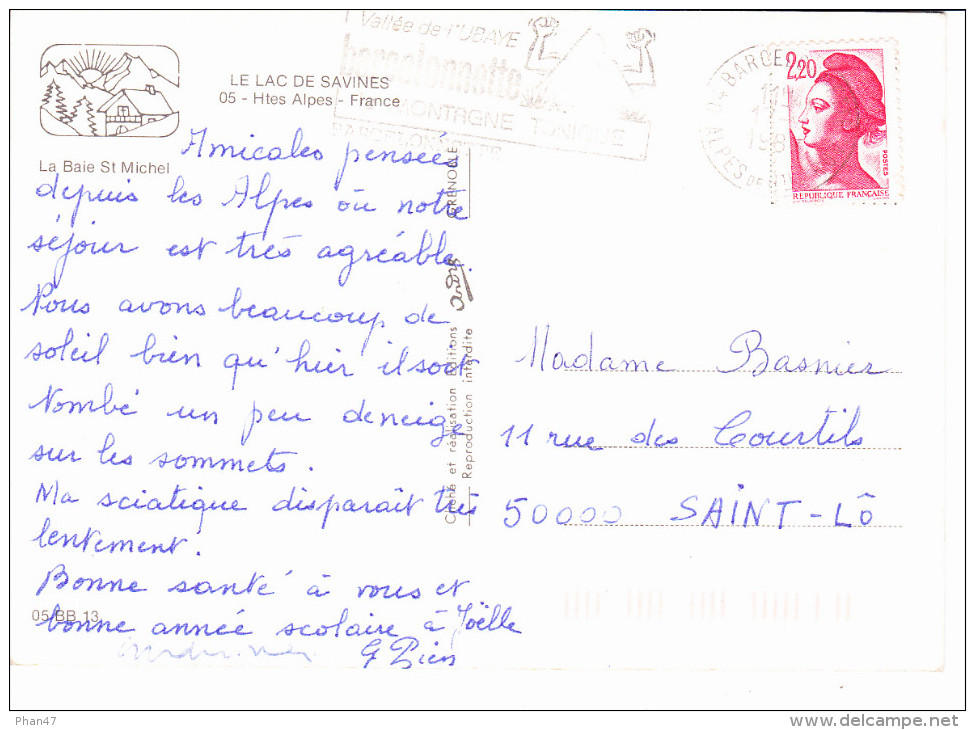 Vallée de l'UBAYE
barcelonnette
MONTAGNE TONIQUE
BARCELONNETTE
BARCE
ALPES DE
198
2,20
POSTES
REPUBLIQUE FRANÇAISE
LE LAC DE SAVINES
05 - Htes Alpes - France
La Baie St Michel
Amicales pensées
depuis les Alpes où notre
séjour est très agréable.
Nous avons beaucoup de
soleil bien qu'hier il soit
tombé un peu de neige
sur les sommets.
Ma sciatique disparaît très
lentement.
Bonne santé à vous et
bonne année scolaire à Joëlle
05 BB 13
GRENOBLE
andré
Cliché et réalisation Editions
Reproduction interdite
Madame Basnier
11 rue des Courtils
50000 SAINT-LÔ
Phan47
delcampe.net